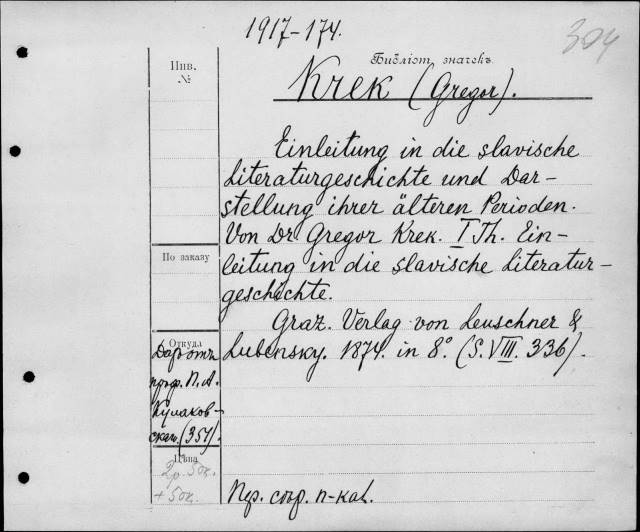 1917-174.
304
Библіот. значекъ
Инв.
№
Krek (Gregor).
Einleitung in die slavische
Literaturgeschichte und Dar-
stellung ihrer älteren Perioden.
Von Dr Gregor Krek. I Th. Ein-
leitung in die slavische Literatur-
geschichte.
Graz. Verlag von Leuschner &
Lubensky. 1874. in 8º. (S. VIII. 336).
По заказу
Откуда
Даръ отъ
проф. П. А.
Кулаков-
скаго (351).
Цѣна
2р. 50к.
+ 50к.
Пер.